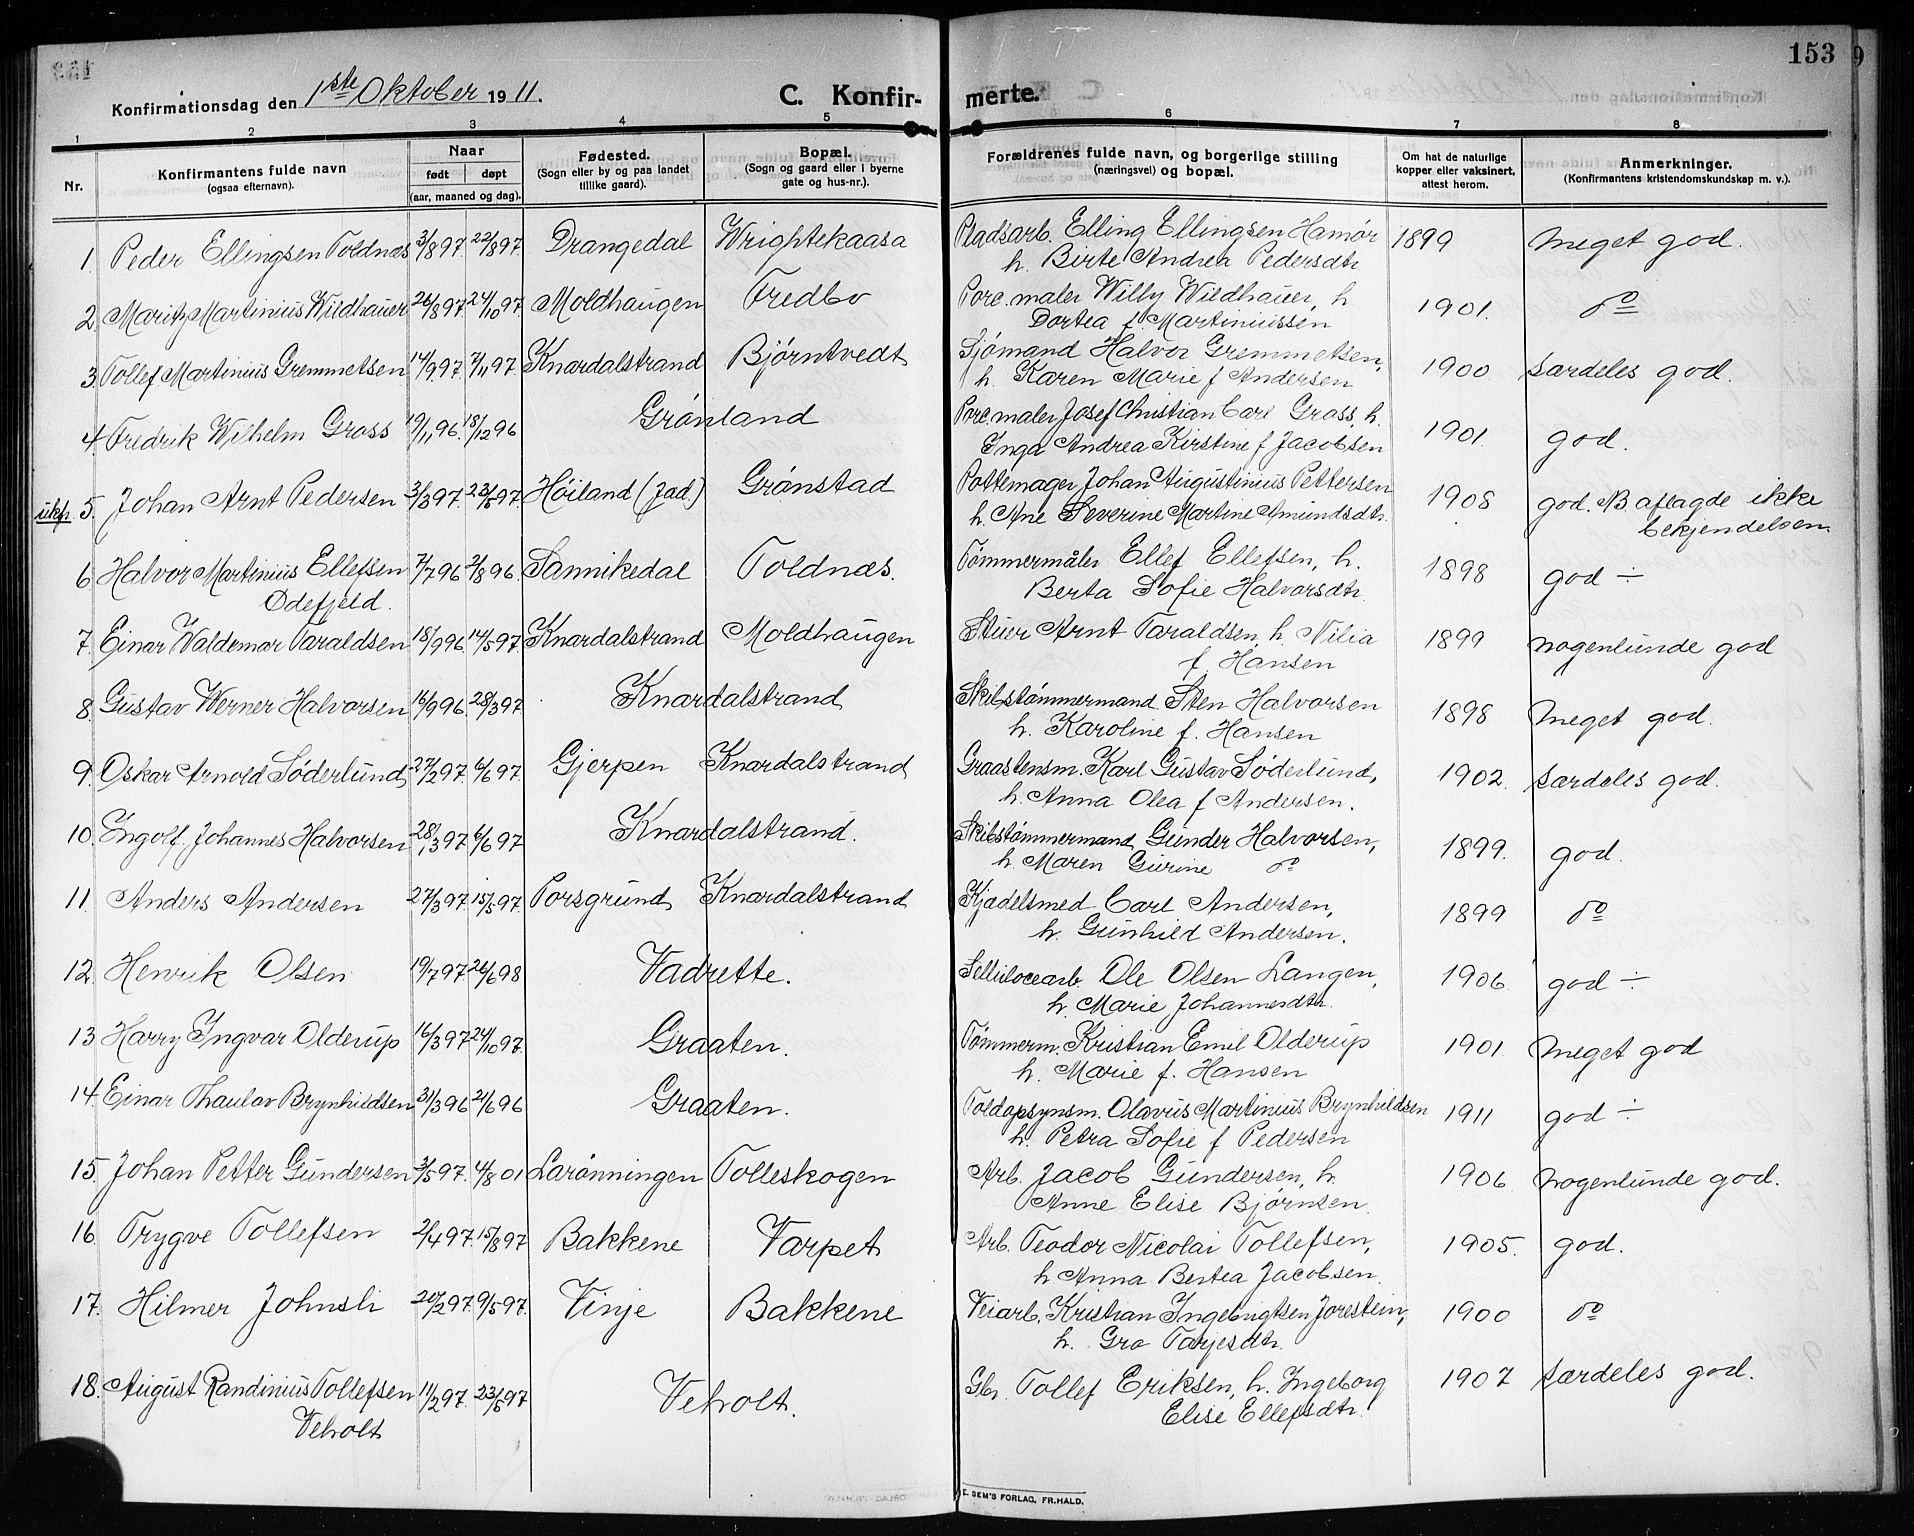 153
Konfirmationsdag den 1ste Oktober 1911.
C. Konfir- merte.
1 2 3 4 5 6 7 8
Nr.
Konfirmantens fulde navn
(ogsaa efternavn).
Naar
født døpt
(aar, maaned og dag).
Fødested.
(Sogn eller by og paa landet
tillike gaard).
Bopæl.
(Sogn og gaard eller i byerne
gate og hus-nr.).
Forældrenes fulde navn, og borgerlige stilling
(næringsvei) og bopæl.
Om hat de naturlige
kopper eller vaksinert,
attest herom.
Anmerkninger.
(Konfirmantens kristendomskundskap m. v.).
1. Peder Ellingsen Toldnæs 3/8 97 22/8 97 Drangedal Wrightekaasa Pladsarb. Elling Ellingsen Hamør 1899 meget god.
h. Birte Andrea Pedersdtr.
2. Maritz Martinius Wildhauer 26/8 97 24/10 97 Moldhaugen Fredbo Porc. maler Willy Wildhauer, h 1901. do
Dortea f. Martiniussen
3. Tollef Martinius Gremmetsen 14/9 97. 7/11 97 Knardalstrand Bjørntvedt Sjømand Halvor Gremmetsen, 1900 særdeles god.
h. Karen Marie f Andersen
4. Fredrik Wilhelm Gross 19/11 96. 18/12 96 Grønland Porc. maler Josef Christian Carl Gross, h. 1901. god.
Inga Andrea Kirstine f Jacobsen
ikkp. 5. Johan Arnt Pedersen 31/3 97. 23/5 97 Høiland (Jad.) Grønstad Pottemager Johan Augustinius Pettersen 1908 god. NB aflagde ikke
h. Ane Severine Martine Amundsdtr. bekjendelsen.
6. Halvor Martinius Ellefsen 7/7 96 2/8 96. Sannikedal Toldnæs. Tømmermåler Ellef Ellefsen, h. 1898 god ÷
Ødefjeld. Berta Sofie Halvorsdtr.
7. Einar Waldemar Taraldsen 18/9 96. 14/5 97. Knardalstrand Moldhaugen Stuer Arnt Taraldsen, h. Nilia 1899 nogenlunde god
f. Hansen
8. Gustav Werner Halvorsen 16/9 96 28/3 97 Knardalstrand Skibstømmermand Sten Halvorsen 1898 meget god.
h. Karoline f. Hansen
9. Oskar Arnold Søderlund 27/2 97 6/6 97 Gjerpen Knardalstrand Graastensm. Karl Gustav Søderlund, 1902. særdeles god.
h. Anna Olea f Andersen.
10. Ingolf Johannes Halvorsen 28/3 97 6/6 97 Knardalstrand. Skibstømmermand Gunder Halvorsen, 1899. god.
h. Maren Gurine do
11. Anders Andersen 27/3 97. 15/5 97. Porsgrund Knardalstrand Kjædelsmed Carl Andersen, 1899 do
h. Gunhild Andersen.
12. Henrik Olsen 19/7 97 26/6 98 Vadrette. Sellulocearb. Ole Olsen Langen, 1906. god ÷
h. Marie Johannesdtr.
13. Harry Ingvar Olderup 16/3 97 24/10 97. Graaten. Tømmerm. Kristian Emil Olderup 1901. meget god
h. Marie f. Hansen
14. Einar Thaulav Brynhildsen 31/3 96 21/6 96 Graaten. Toldopsynsm. Olavus Martinius Brynhildsen 1911 god ÷
h. Petra Sofie f Pedersen
15. Johan Petter Gundersen 3/5 97. 4/8 01 Larønningen Tolleskogen Arb. Jacob Gundersen, h. 1906. nogenlunde god.
Anne Elise Bjørnsen.
16. Trygve Tollefsen 2/4 97. 15/8 97 Bakkene Varpet Arb. Teodor Nicolai Tollefsen, 1905. god.
h Anna Bertea Jacobsen.
17. Hilmer Johnsli 20/2 97. 9/5 97. Vinje Bakkene Veiarb. Kristian Ingebrigtsen Jorestein, 1900 do
h. Gro Tarjesdtr.
18. August Randinius Tollefsen 11/2 97. 23/5 97 Veholt. Gbr. Tollef Eriksen, h. Ingeborg 1907 særdeles god.
Veholt Elise Ellefsdtr.
E. SEM'S FORLAG, FR.HALD.